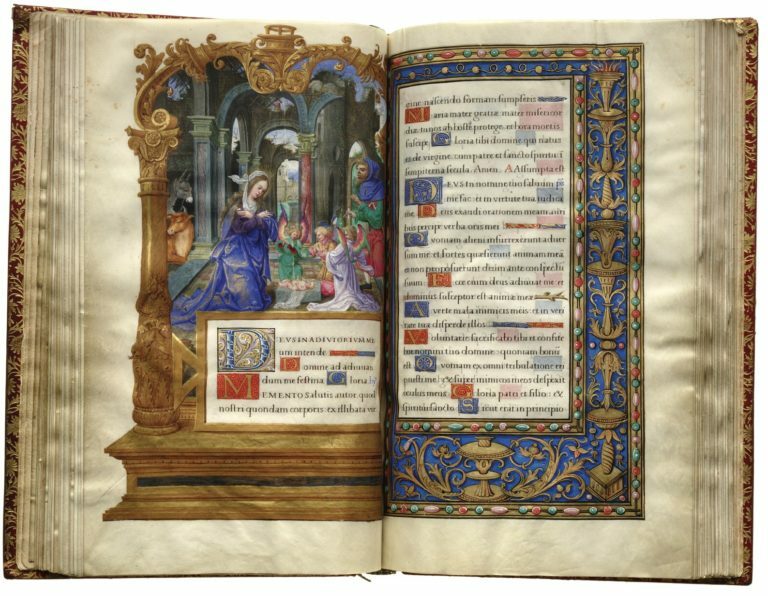 DEUS IN ADIUTORIUM ME
um intende
Domine ad adiuuan
dum me festina. Gloria
MEMENTO salutis autor quod
nostri quondam corporis ex illibata vir
gine nascendo formam sumpseris
Maria mater gratiæ mater misericor
diæ tu nos ab hoste protege et hora mortis
suscipe Gloria tibi domine qui natus
es de virgine cum patre et sancto spiritu in
sempiterna secula. Amen. A Assumpta est
DEUS in nomine tuo saluum
me fac: et in virtute tua iudica
me. Deus exaudi orationem meam auri
bus percipe verba oris mei
Quoniam alieni insurrexerunt aduer
sum me et fortes quæsierunt animam mea
et non proposuerunt deum ante conspectu
suum Ecce enim deus adiuuat me: et
dominus susceptor est animæ meæ
Auerte mala inimicis meis: et in veri
tate tua disperde illos
Voluntarie sacrificabo tibi et confite
bor nomini tuo domine: quoniam bonum
est Quoniam ex omni tribulatione eri
puisti me: & super inimicos meos despexit
oculus meus Gloria patri et filio: et
spiritui sancto Sicut erat in principio